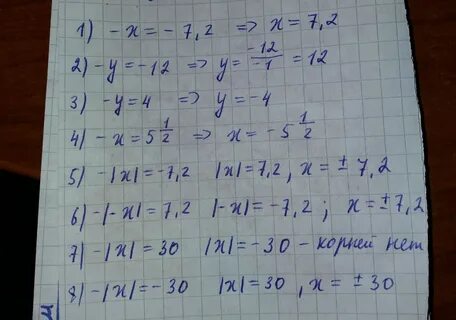 1) -x = -7,2 => x = 7,2
2) -y = -12 => y = -12/-1 = 12
3) -y = 4 => y = -4
4) -x = 5 1/2 => x = -5 1/2
5) -|x| = -7,2 |x| = 7,2, x = ± 7,2
6) -|-x| = 7,2 |-x| = -7,2; x = ± 7,2
7) -|x| = 30 |x| = -30 - корней нет
8) -|x| = -30 |x| = 30, x = ± 30